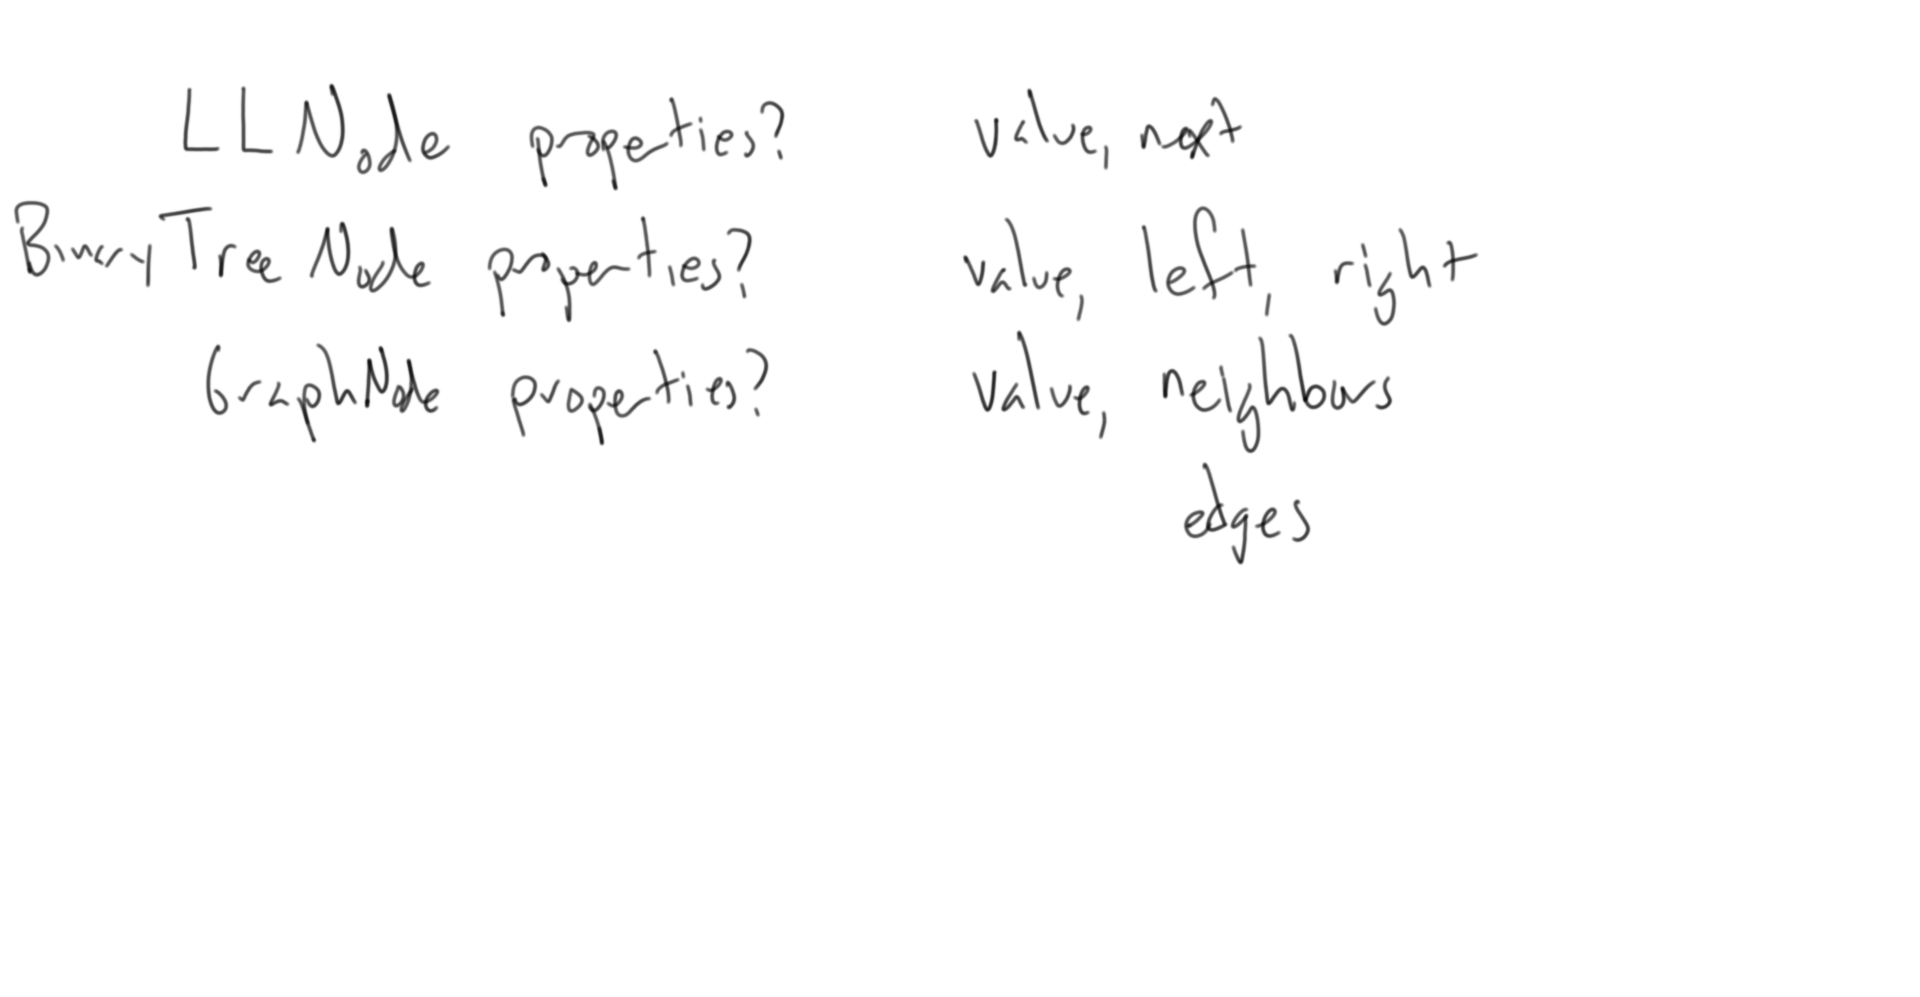 LLNode properties? value, next
BinaryTreeNode properties? value, left, right
GraphNode properties? value, neighbours
edges